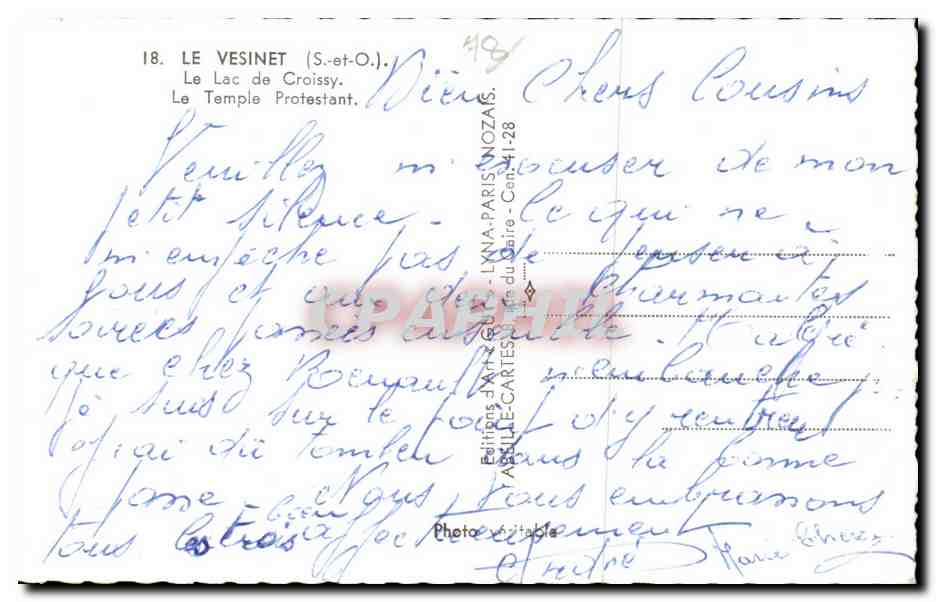 18. LE VESINET (S.-et-O.).
Le Lac de Croissy.
Le Temple Protestant.
78
Bien Chers Cousins
Veuillez m'excuser de mon
petit silence - ce qui ne
m'empêche pas de penser à
vous et aux deux charmantes
soirées passées ensemble. Malgré
que chez Renault n'embauche
je suis sur le point d'y rentrer
j'ai dû tomber dans la bonne
passe - Nous vous embrassons
tous les trois bien affectueusement
André Marie
Editions d'Art "GUY" - LYNA-PARIS, NOZAIS.
ABEILLE-CARTES - Cen. 41-28
CPARAMA
Photo véritable